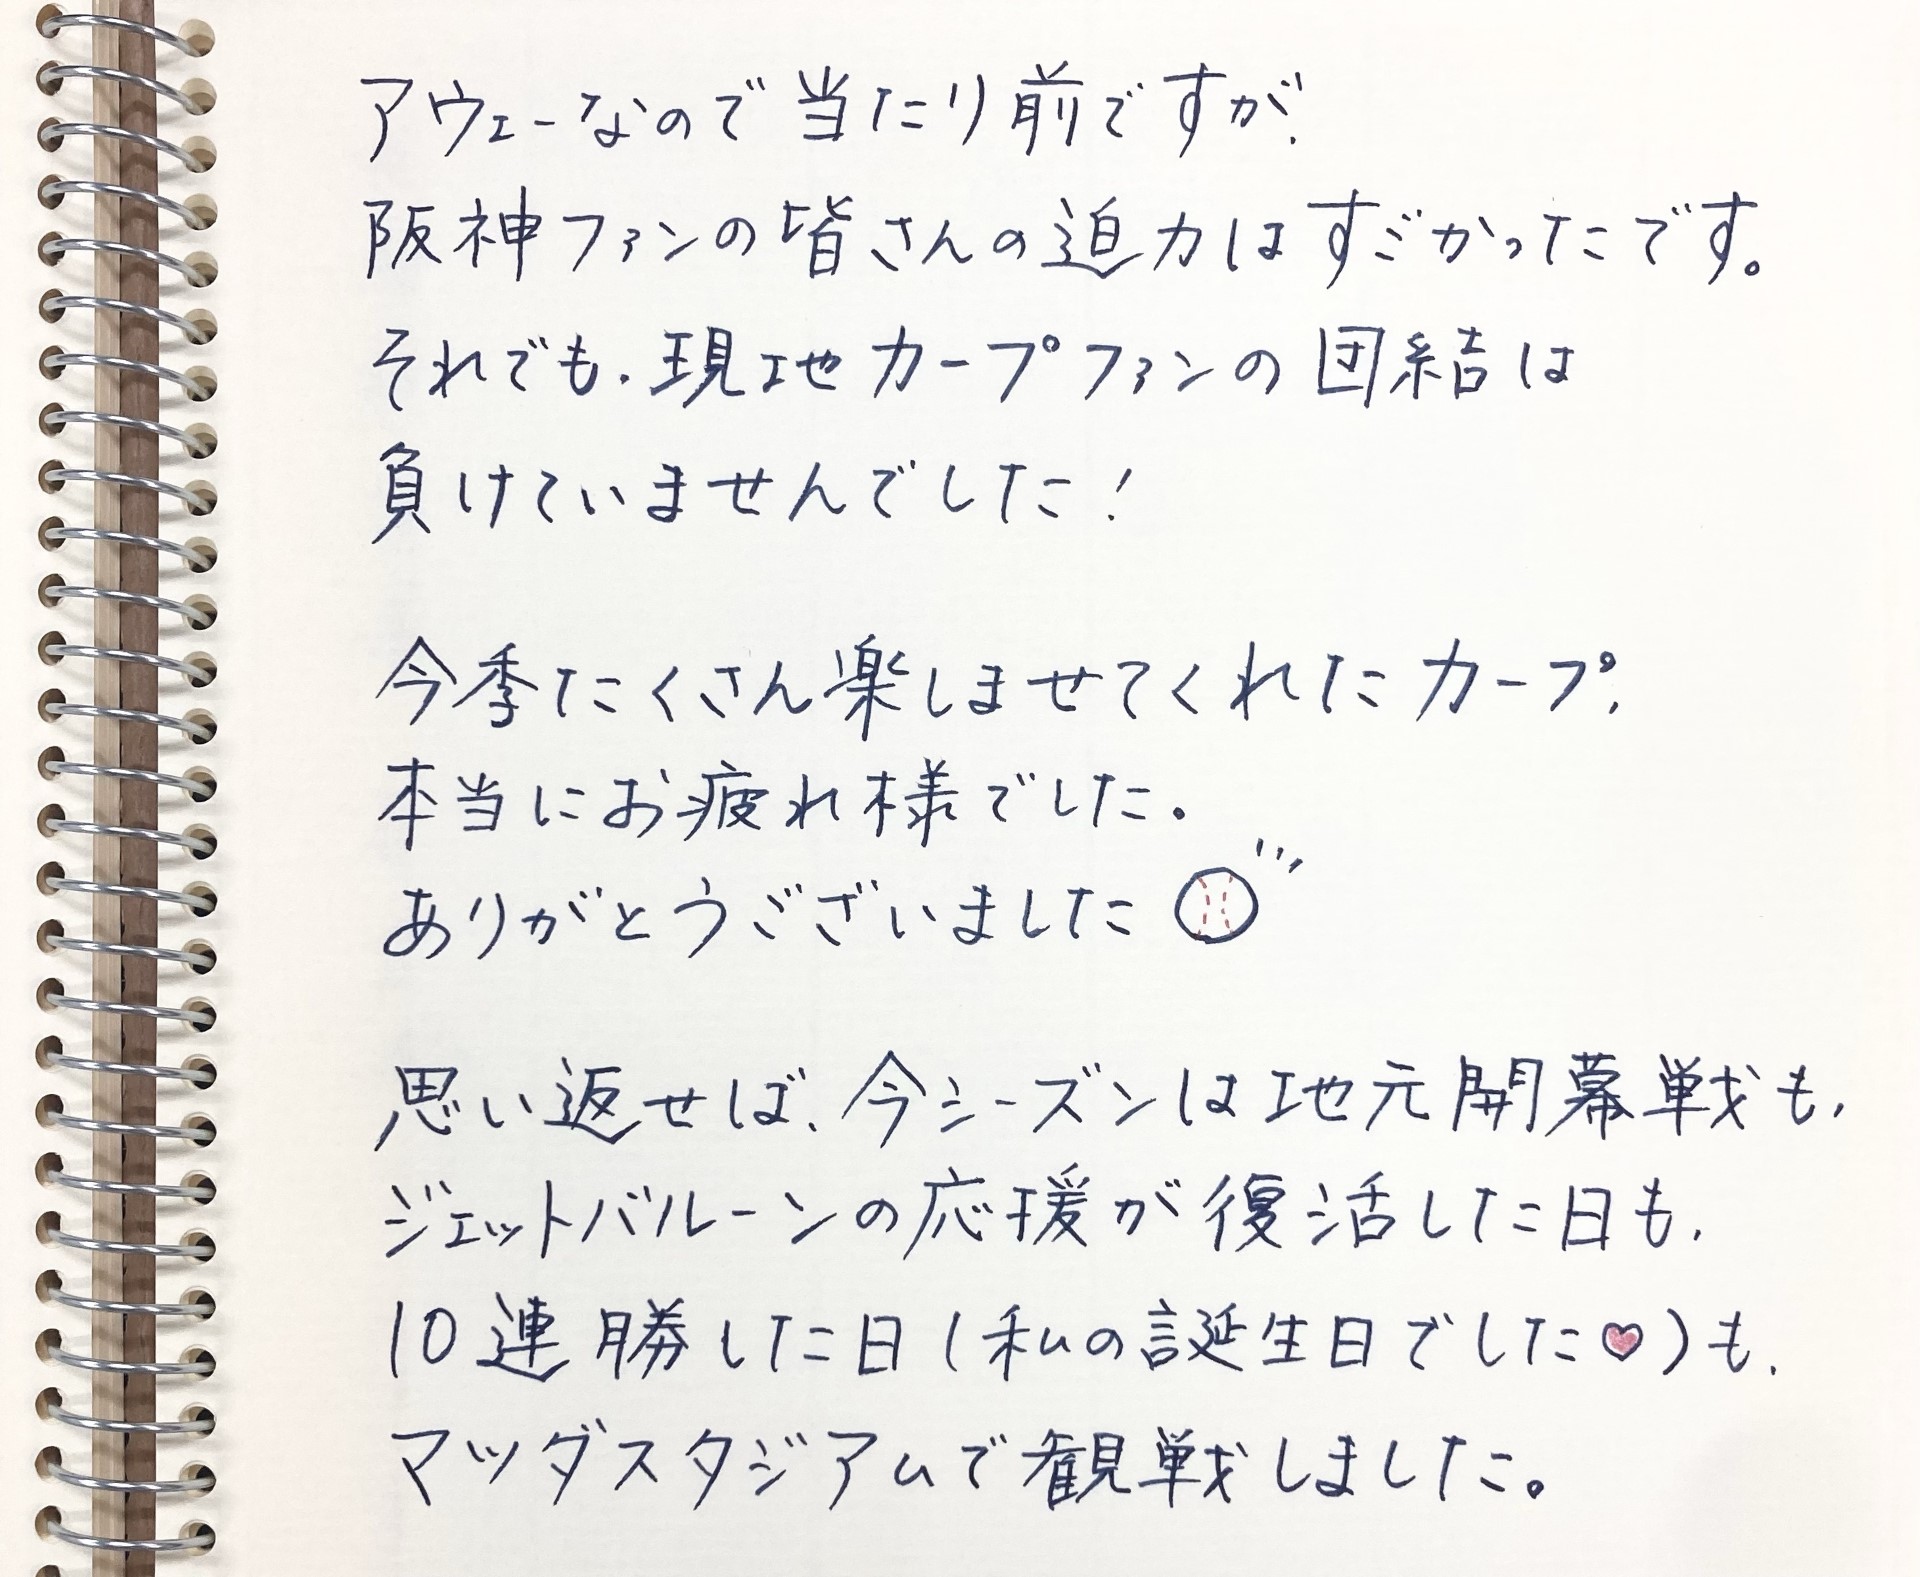 アウェーなので当たり前ですが、
阪神ファンの皆さんの迫力はすごかったです。
それでも、現地カープファンの団結は
負けていませんでした！
今季たくさん楽しませてくれたカープ、
本当にお疲れ様でした。
ありがとうございました
思い返せば、今シーズンは地元開幕戦も、
ジェットバルーンの応援が復活した日も、
10連勝した日(私の誕生日でした♥)も、
マツダスタジアムで観戦しました。